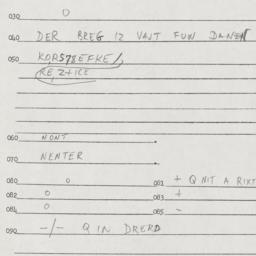 030 0
040 DER BREG IZ VAJT FUN DANEN
050 KOR578EFKE/,
RE, Z+ICE
060 NONT.
070 NENTER.
080 0 081 + Q NIT A RIXT
082 0 083 +
084 0 085 -
090 -/- Q IN DRERD